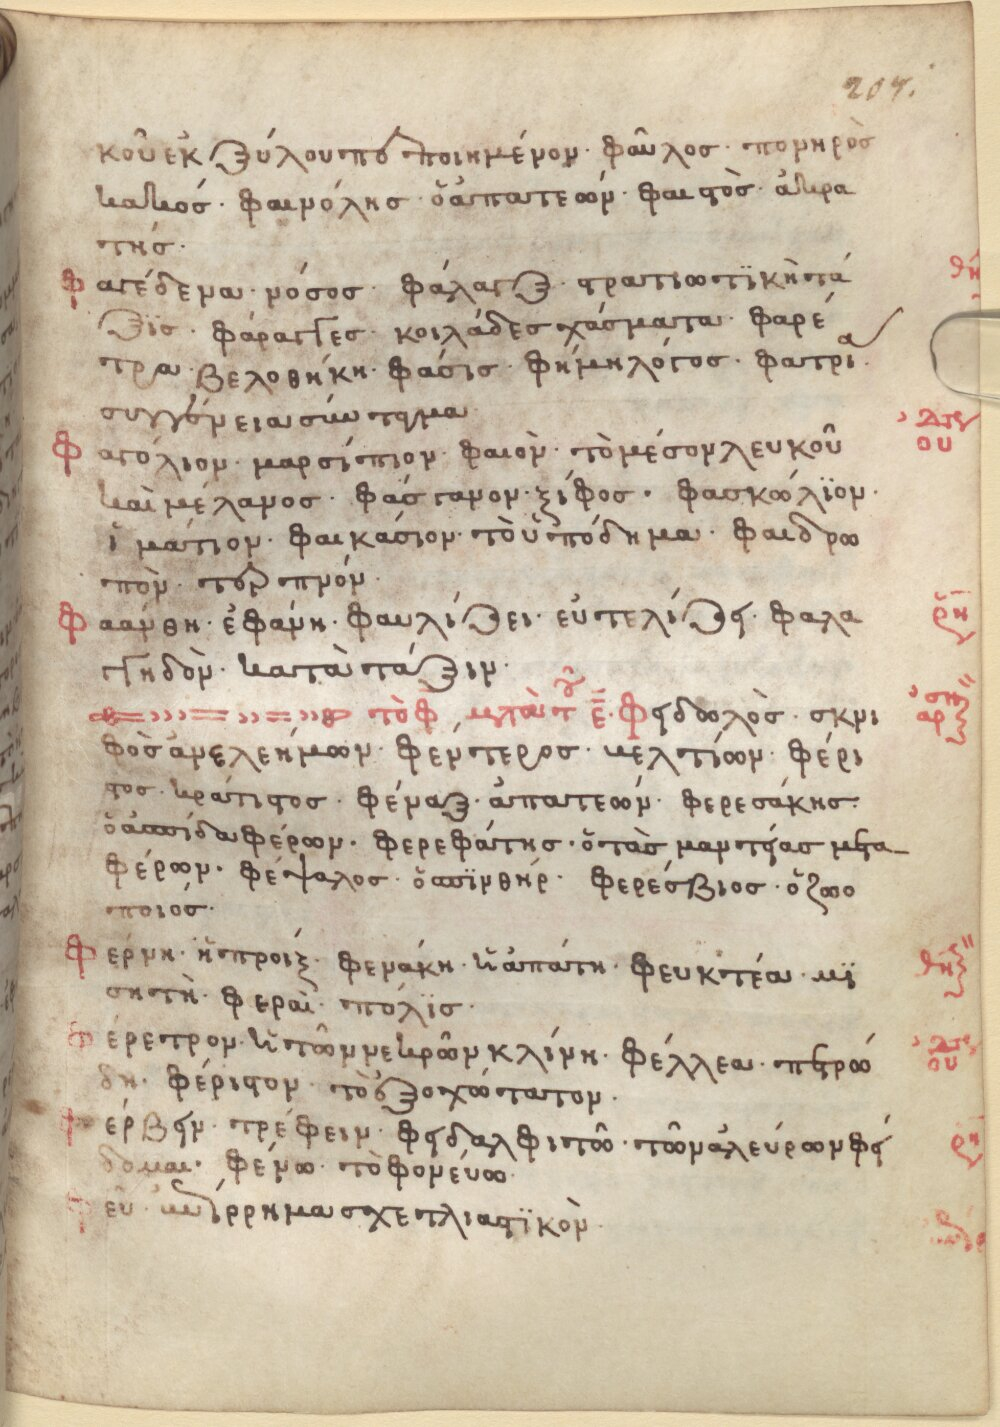 207.
κοῦ ἐκ ξύλου πεποιημένον· φαῦλος· πονηρὸς
κακός· φαινόλης· ὁ ἀπατεών· φαιστὸς· ἀκρα
τής·
Φαγέδενα· νόσος· φάλαγξ· στρατιωτϊκὴ τά
ξϊς· φάραγγες· κοιλάδες χάσματα· φαρέ
τρα· βελοθήκη· φάσις· φήμη λόγος· φατρία·
συγγένεια σύστημα
Φαγόλιον· μαρσίπιον· φαιὸν· τὸ μέσον λευκοῦ
καὶ μέλανος· φάσγανον· ξίφος· φασκώλϊον·
ἱμάτιον· φαικάσιον· τὸ ὑπόδημα· φαιδρω
πὸν· τερπνόν·
Φαάνθη· ἐφάνη· φαυλίζει· εὐτελίζει· φαλα
γγηδὸν· κατὰ τάξιν·
τὸ φ μετὰ τοῦ ε· Φειδωλὸς· σκνι
φὸς ἀνελεήμων· φέρτερος· βελτίων· φέρι
στος· κράτιστος· φέναξ· ἀπατεών· φερεσάκης·
ὁ ἀσπίδα φέρων· φερεφάτης· ὁ τὰς μαντείας μετα
φέρων· φέψαλος· ὁ σπϊνθήρ· φερέσβιος· ὁ ζωο
ποιος·
Φερνη· ἡ προίξ· φενάκη· ἡ ἀπάτη· φευκτέα· μϊ
σητὴ· φεραὶ· πόλϊς·
Φέρετρον· ἡ τῶν νεκρῶν κλίνη· φέλλεα· πετρώ
δη· φέριστον· τὸ ἐξοχώτατον·
Φέρβειν· τρέφειν· φειδαλφιτῶ· τῶν ἀλεύρων φεί
δομαι· φένω· τὸ φονεύω·
Φεῦ· ἐπίρρημα σχετλιαστϊκὸν·